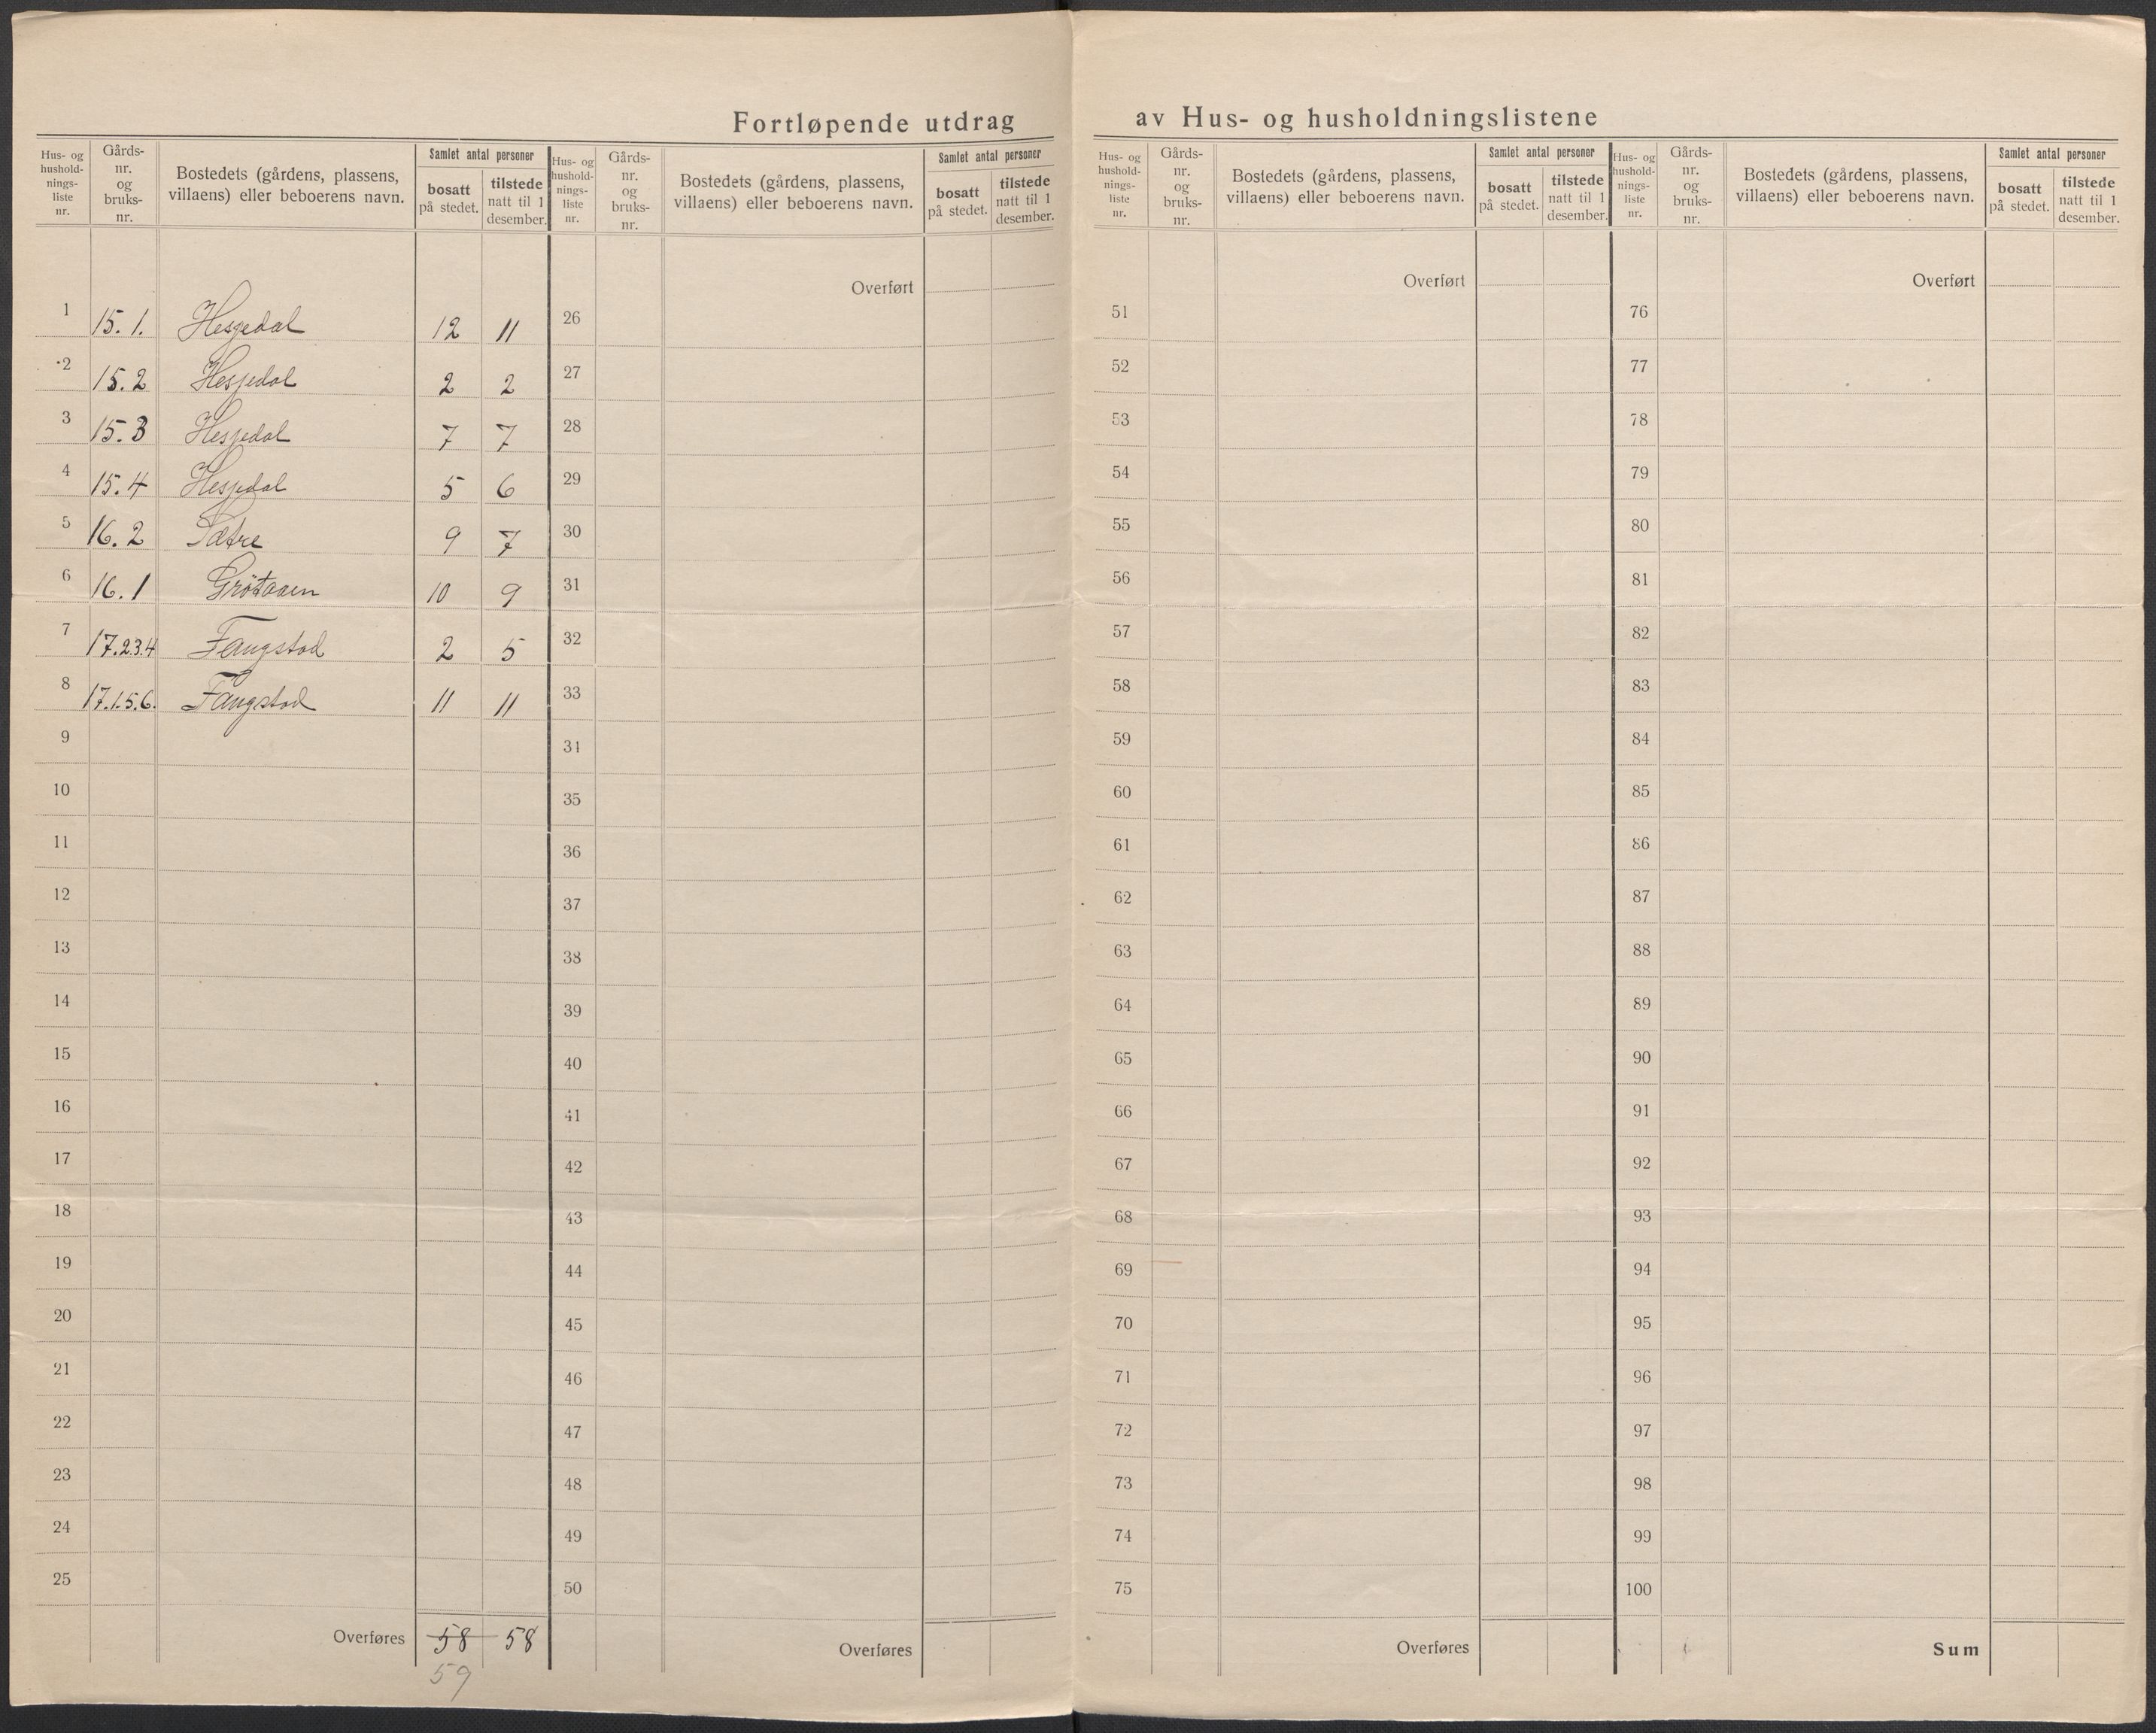 Fortløpende utdrag av Hus- og husholdningslistene
Hus- og hushold-nings-liste nr. Gårds-nr. og bruks-nr. Bostedets (gårdens, plassens, villaens) eller beboerens navn. Samlet antal personer bosatt på stedet. tilstede natt til 1 desember.
1 15.1. Hesjedal 12 11
2 15.2 Hesjedal 2 2
3 15.3 Hesjedal 7 7
4 15.4 Hesjedal 5 6
5 16.2 Sætre 9 7
6 16.1 Grötaaen 10 9
7 17.2.3.4 Fangstad 2 5
8 17.1.5.6. Fangstad 11 11
9
10
11
12
13
14
15
16
17
18
19
20
21
22
23
24
25
Overføres 58 58
59
Hus- og hushold-nings-liste nr. Gårds-nr. og bruks-nr. Bostedets (gårdens, plassens, villaens) eller beboerens navn. Samlet antal personer bosatt på stedet. tilstede natt til 1 desember.
Overført
26
27
28
29
30
31
32
33
34
35
36
37
38
39
40
41
42
43
44
45
46
47
48
49
50
Overføres
Hus- og hushold-nings-liste nr. Gårds-nr. og bruks-nr. Bostedets (gårdens, plassens, villaens) eller beboerens navn. Samlet antal personer bosatt på stedet. tilstede natt til 1 desember.
Overført
51
52
53
54
55
56
57
58
59
60
61
62
63
64
65
66
67
68
69
70
71
72
73
74
75
Overføres
Hus- og hushold-nings-liste nr. Gårds-nr. og bruks-nr. Bostedets (gårdens, plassens, villaens) eller beboerens navn. Samlet antal personer bosatt på stedet. tilstede natt til 1 desember.
Overført
76
77
78
79
80
81
82
83
84
85
86
87
88
89
90
91
92
93
94
95
96
97
98
99
100
Sum